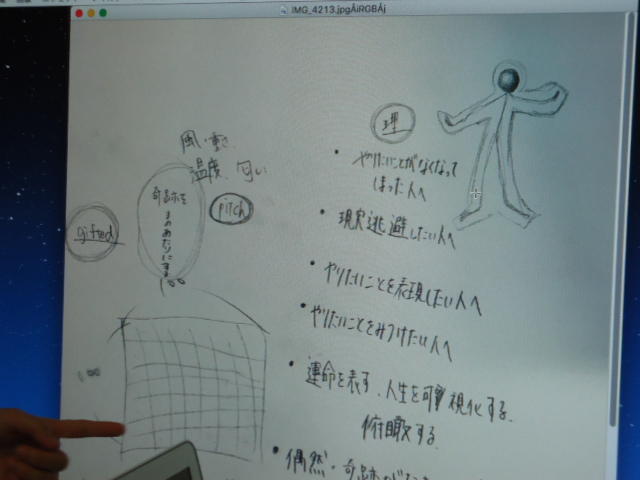 IMG_4213.jpgÅiRGBÅj
理
風い動、
温度、匂い
奇跡を
まのあたりにする
100
gifted
pitch
・やりたいことがなくなって
しまった人へ
・現実逃避したい人へ
・やりたいことを表現したい人へ
・やりたいことをみつけたい人へ
・運命を表す、人生を可視化する、
俯瞰する。
100
・偶然・奇跡